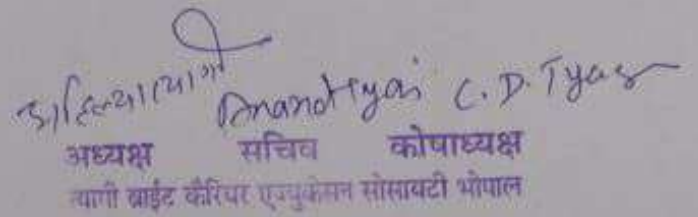 अहिल्या त्यागी Anand Tyagi C.D. Tyagi
अध्यक्ष सचिव कोषाध्यक्ष
त्यागी ब्राईट कैरियर एज्युकेशन सोसायटी भोपाल